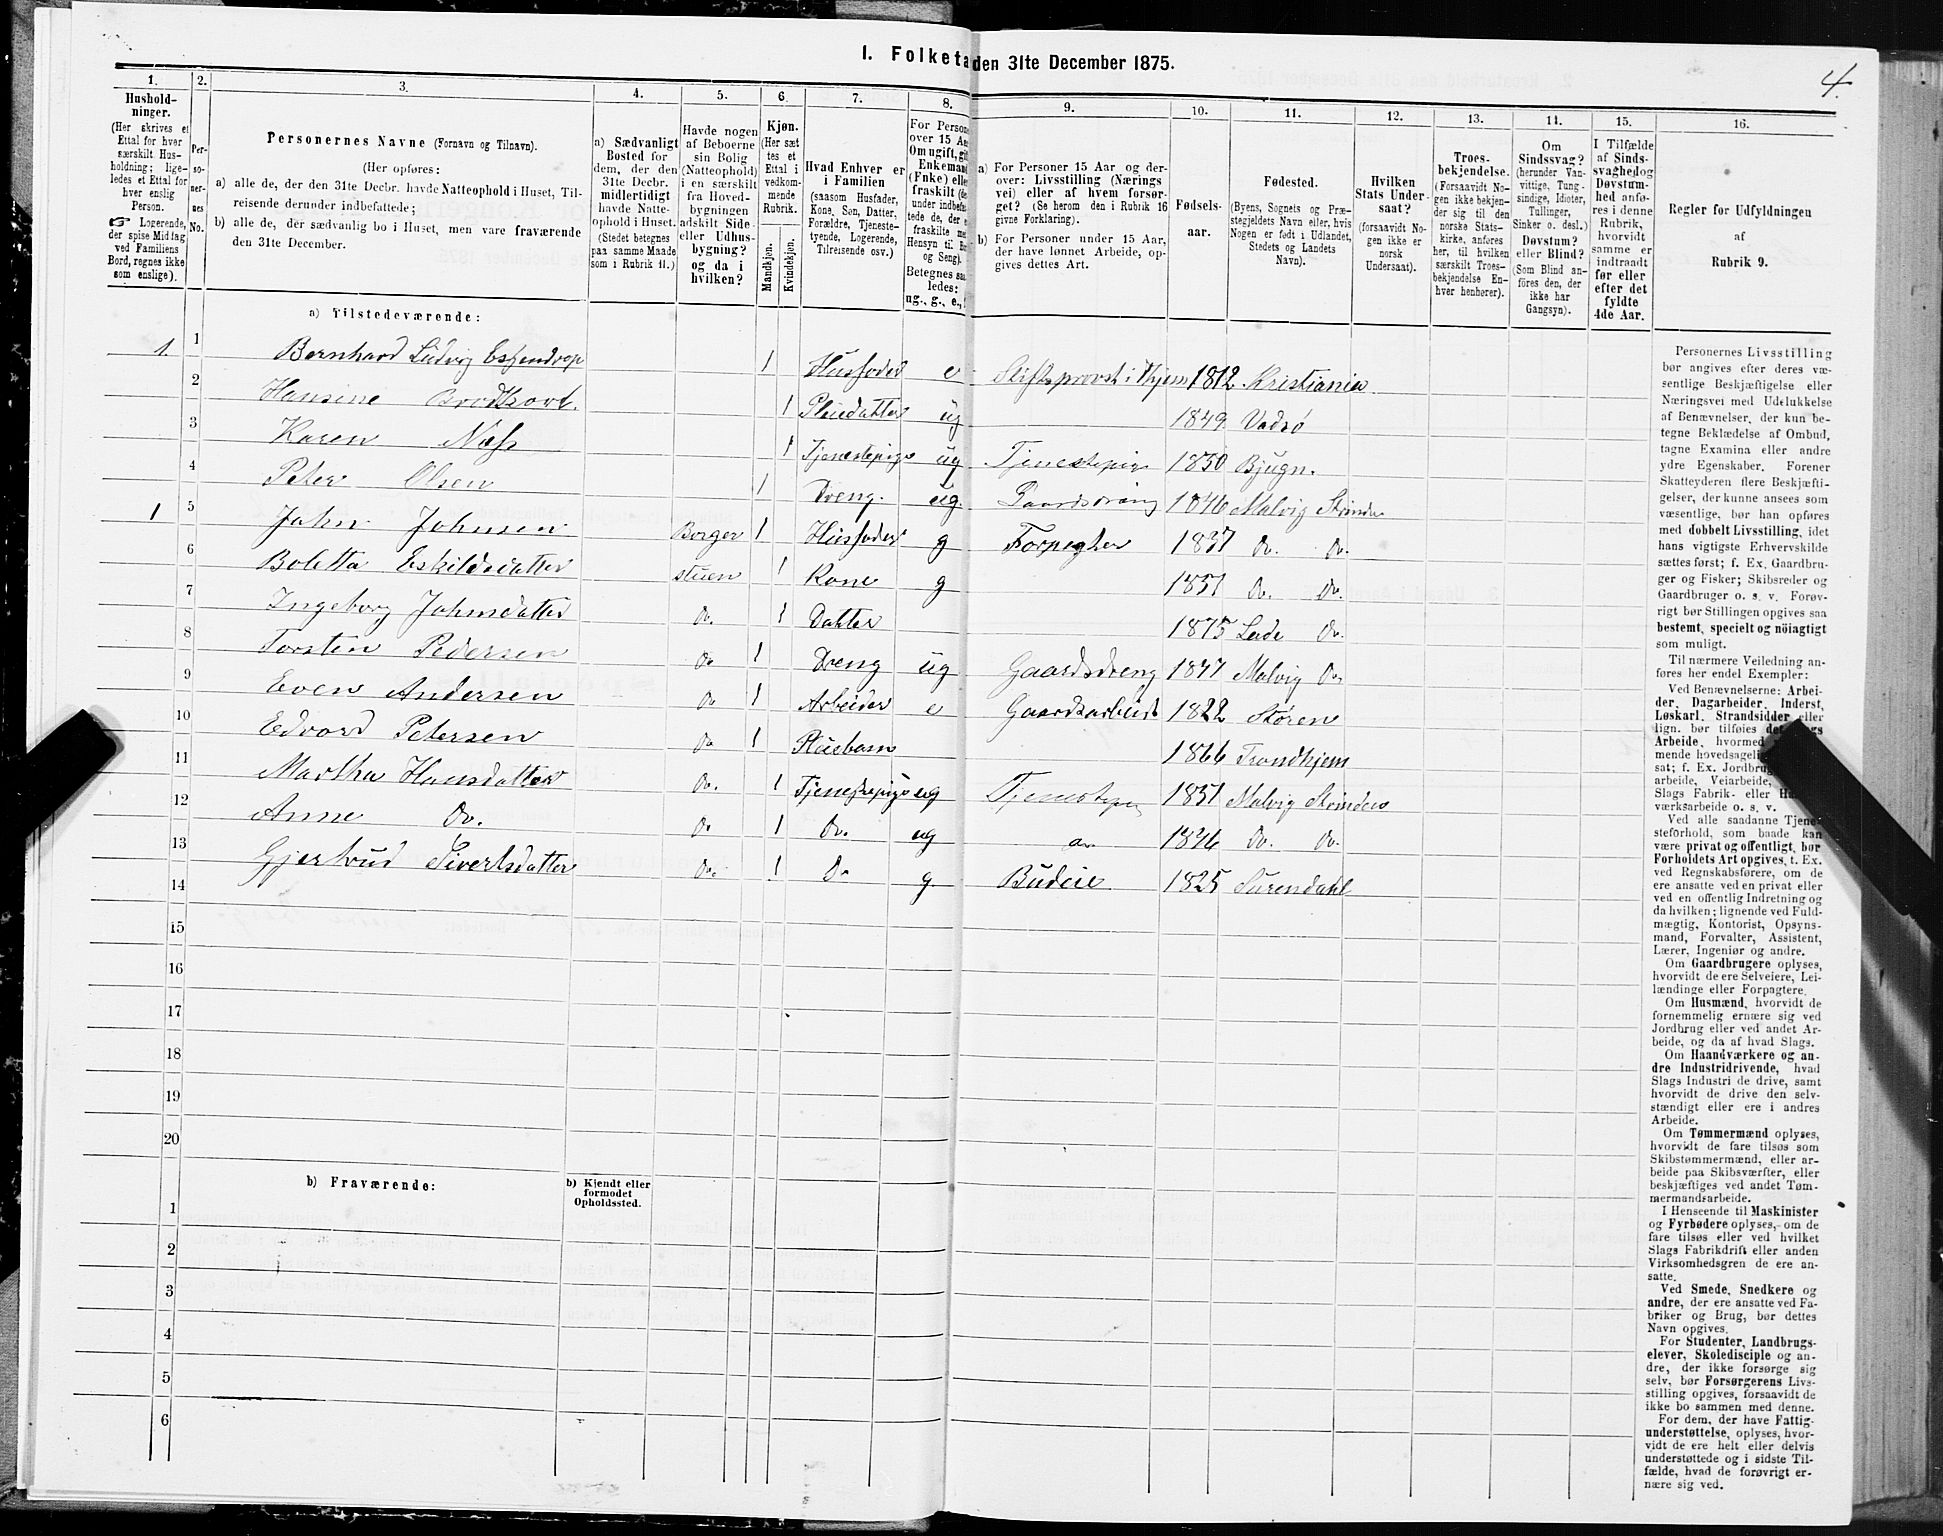 I. Folketa den 31te December 1875.
4.
1.
Hushold-
ninger.
(Her skrives et
Ettal for hver
særskilt Hus-
holdning; lige-
ledes et Ettal for
hver enslig
Person.
Logerende,
der spise Middag
ved Familiens
Bord, regnes ikke
som enslige).
2.
Per-
so-
ner-
nes
No.
3.
Personernes Navne (Fornavn og Tilnavn).
(Her opføres:
a) alle de, der den 31te Decbr. havde Natteophold i Huset, Til-
reisende derunder indbefattede;
b) alle de, der sædvanlig bo i Huset, men vare fraværende
den 31te December.
4.
a) Sædvanligt
Bosted for
dem, der den
31te Decbr.
midlertidigt
havde Natte-
ophold i Huset.
(Stedet betegnes
paa samme Maade
som i Rubrik 11.)
5.
Havde nogen
af Beboerne
sin Bolig
(Natteophold)
i en særskilt
fra Hoved-
bygningen
adskilt Side-
eller Udhus-
bygning?
og da i
hvilken?
6.
Kjøn.
(Her sæt-
tes et
Ettal i
vedkom-
mende
Rubrik.
Mandkjøn.
Kvindekjøn.
7.
Hvad Enhver er
i Familien
(saasom Husfader,
Kone, Søn, Datter,
Forældre, Tjeneste-
tyende, Logerende,
Tilreisende osv.)
8.
For Person
over 15 Aa
Om ugift, gif
Enkemand
(Enke) elle
fraskilt (de
under indbefat-
tede de, der e
fraskilte me
Hensyn til Bo
og Seng).
Betegnes saa
ledes:
ug., g., e.,
9.
a) For Personer 15 Aar og der-
over: Livsstilling (Nærings
vei) eller af hvem forsør-
get? (Se herom den i Rubrik 16
givne Forklaring).
b) For Personer under 15 Aar,
der have lønnet Arbeide, op-
gives dettes Art.
10.
Fødsels-
aar.
11.
Fødested.
(Byens, Sognets og Præ-
stegjeldets Navn eller, hvis
Nogen er født i Udlandet,
Stedets og Landets
Navn).
12.
Hvilken
Stats Under-
saat?
(forsaavidt No-
gen ikke er
norsk
Undersaat).
13.
Troes-
bekjendelse.
(Forsaavidt No-
gen ikke bekjen-
der sig til den
norske Stats-
kirke, anføres
her, til hvilken
særskilt Troes-
bekjendelse En-
hver henhører).
14.
Om
Sindssvag?
(herunder Van-
vittige, Tung-
sindige, Idioter,
Tullinger,
Sinker o. desl.)
Døvstum?
eller Blind?
(Som Blind an-
føres den, der
ikke har
Gangsyn).
15.
I Tilfælde
af Sinds-
svaghed og
Døvstum-
hed anfø-
res i denne
Rubrik,
hvorvidt
samme er
indtraadt
før eller
efter det
fyldte
4de Aar.
16.
Regler for Udfyldningen
af
Rubrik 9.
a) Tilstedeværende:
1 1 Bernhard Ludvig Essendrop 1 Husfader e Stiftsprovst i Thjem 1812 Kristiania
2 Hansine Brodtkorb. 1 Pleiedatter ug 1849 Vadsø
3 Karen Næss 1 Tjenestepige ug Tjenestepige 1850 Bjugn.
4 Peter Olsen 1 Dreng. ug. Gaardsdreng 1846 Malvig Strinden
1 5 John Johnsen Borger 1 Husfader g Forpagter 1837 Do. Do.
6 Boletta Eskildsdatter stuen 1 Kone g 1851 Do. Do.
7 Ingeborg Johnsdatter Do. 1 Datter 1875 Lade Do.
8 Torsten Pedersen Do 1 Dreng ug Gaardsdreng 1847 Malvig Do.
9 Even Andersen Do 1 Arbeider e Gaardsarbeide 1822 Støren
10 Edvard Petersen Do 1 Pleiebarn 1866 Trondhjem
11 Martha Hansdatter Do. 1 Tjenestepige ug Tjenestepige 1851 Malvig Strinden
12 Anne Do. Do 1 Do. ug Do 1846 Do. Do.
13 Gjertrud Sivertsdatter Do. 1 Do g. Budeie 1825 Surendahl
14
15
16
17
18
19
20
b) Fraværende:
b) Kjendt eller
formodet
Opholdssted.
1
2
3
4
5
6
Personernes Livsstilling
bør angives efter deres væ-
sentlige Beskjæftigelse eller
Næringsvei med Udelukkelse
af Benævnelser, der kun be-
tegne Beklædelse af Ombud,
tagne Examina eller andre
ydre Egenskaber. Forener
Skatteyderen flere Beskjæfti-
gelser, der kunne ansees som
væsentlige, bør han opføres
med dobbelt Livsstilling, idet
hans vigtigste Erhvervskilde
sættes først; f. Ex. Gaardbru-
ger og Fisker; Skibsreder og
Gaardbruger o. s. v. Forøv-
rigt bør Stillingen opgives saa
bestemt, specielt og nöiagtigt
som muligt.
Til nærmere Veiledning an-
føres her endel Exempler:
Ved Benævnelserne: Arbei-
der, Dagarbeider, Inderst,
Løskarl, Strandsidder eller
lign. bør tilføies det Slags
Arbeide, hvormed
mende hovedsagelig
sat; f. Ex. Jordbrug
arbeide, Veiarbeide,
Slags Fabrik- eller Ha
værksarbeide o. s. v.
Ved alle saadanne Tjene-
steforhold, som baade kan
være privat og offentligt, bør
Forholdets Art opgives, t. Ex.
ved Regnskabsførere, om de
ere ansatte ved en privat eller
ved en offentlig Indretning og
da hvilken; lignende ved Fuld-
mægtig, Kontorist, Opsyns-
mand, Forvalter, Assistent,
Lærer, Ingeniør og andre.
Om Gaardbrugere oplyses,
hvorvidt de ere Selveiere, Lei-
lændinge eller Forpagtere.
Om Husmænd, hvorvidt de
fornemmelig ernære sig ved
Jordbrug eller ved andet Ar-
beide, og da af hvad Slags.
Om Haandværkere og an-
dre Industridrivende, hvad
Slags Industri de drive, samt
hvorvidt de drive den selv-
stændigt eller ere i andres
Arbeide.
Om Tømmermænd oplyses,
hvorvidt de fare tilsøs som
Skibstømmermænd, eller ar-
beide paa Skibsværfter, eller
beskjæftiges ved andet Tøm-
mermandsarbeide.
I Henseende til Maskinister
og Fyrbødere oplyses, om de
fare tilsøs eller ved hvilket
Slags Fabrikdrift eller anden
Virksomhedsgren de ere an-
satte.
Ved Smede, Snedkere og
andre, der ere ansatte ved Fa-
briker og Brug, bør dettes
Navn opgives.
For Studenter, Landbrugs-
elever, Skoledisciple og an-
dre, der ikke forsørge sig
selv, bør Forsørgerens Livs-
stilling opgives, forsaavidt de
ikke bo sammen med denne.
For dem, der have Fattig-
understøttelse, oplyses, hvor-
vidt de ere helt eller delvis
understøttede og i sidste Til-
fælde, hvad de forøvrigt er-
nære sig ved.